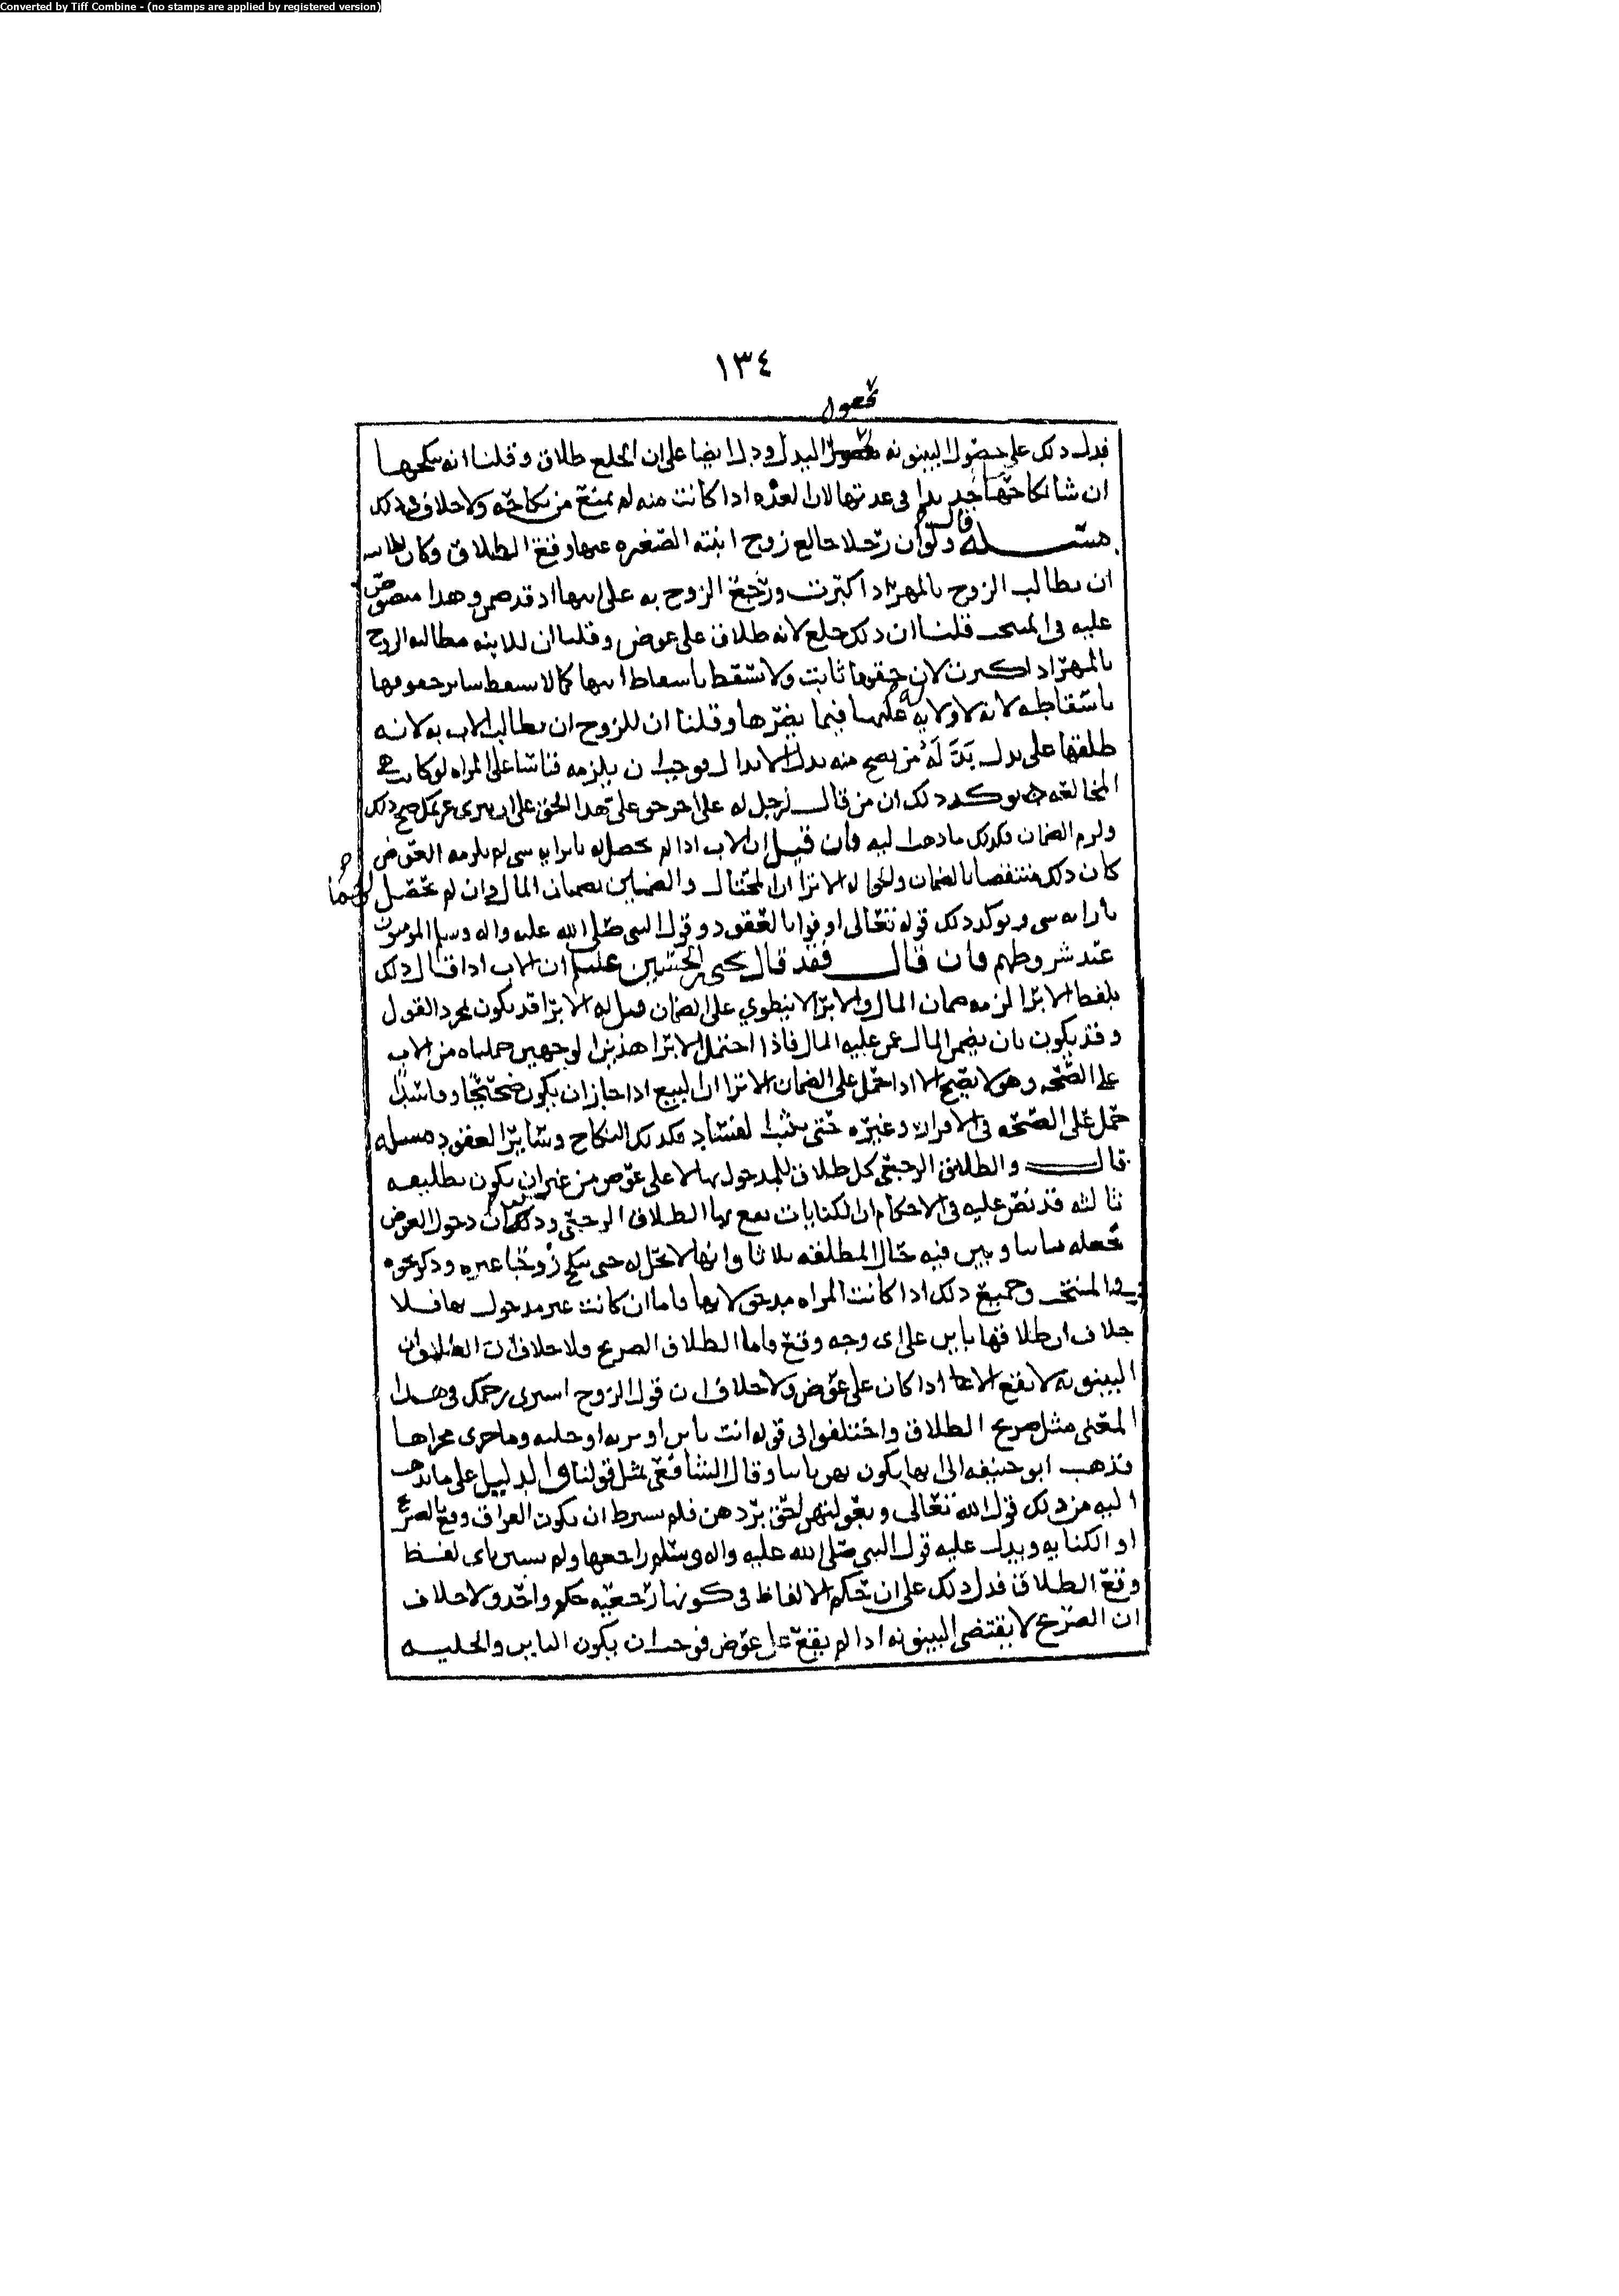 Converted by Tiff Combine - (no stamps are applied by registered version)
١٣٤
بحصول
فدل ذلك على حصول البينونة بحصول البدل ودل ايضا على ان الخلع طلاق وقلنا انه ينكحها
ان شا نكاحا جديدا في عدتها لان العده اذا كانت منه لم يمنع من نكاحه ولا خلاف في ذلك
مسئله قال ولو ان رجلا خالع زوج ابنته الصغيره عنها وقع الطلاق وكان لها
ان تطالب الزوج بالمهر اذا كبرت ورجع الزوج به على ابيها اذ قد ضمن وهذا منصوص
عليه في المنتخب قلنا ان ذلك خلع لانه طلاق على عوض وقلنا ان للابنه مطالبه الزوج
بالمهر اذا كبرت لان حقوقها ثابت ولا تسقط باسقاط ابيها كما لا يسقط ساير حقوقها
باسقاطه لانه لا ولايه له عليها فيما يضرها وقلنا ان للزوج ان يطالب الاب به لانه
طلقها على بدل بذله من يصح منه بذل الابدال فوجب ان يلزمه قياسا على المراه لو كانت هي
المخالعه يوكد ذلك ان من قال لرجل له على اخر حق على هذا الحق على ان تبري عملك صح ذلك
ولزم الضمان فكذلك ما ذهبنا اليه فان قيل ان الاب اذا لم يحصل له بابرايه شي لم يلزمه العوض
كان ذلك منتقضا بالضمان والحواله الا ترا ان المحتال والضمين يضمنان المال وان لم يحصل لهما
بابرايه شي ويوكد ذلك قوله تعالى اوفوا بالعقود وقول النبي صلى الله عليه واله وسلم المومنون
عند شروطهم فان قال فقد قال يحيى بن الحسين عليلم ان الاب اذا قال ذلك
بلفظ الابرا لزمه ضمان المال والابرا لا ينطوي على الضمان قيل له الابرا قد يكون بمجرد القول
وقد يكون بان يضمن المال عمن عليه المال فاذا احتمل الابرا هذين الوجهين حملناه من الاب
على الصحه وهو لا يصح الا اذا حمل على الضمان الا ترا ان البيع اذا جاز ان يكون صحيحا وفاسدا
حمل على الصحه في الاقرار وغيره حتى يثبت الفساد فكذلك النكاح وساير العقود مسئله
قال والطلاق الرجعي كل طلاق للمدخول بها لا على عوض من غير ان يكون تطليقه
ثالثه قد نص عليه في الاحكام ان الكنايات تقع بها الطلاق الرجعي وذكر ان دخول العوض
يجعله باينا وبين فيه حال المطلقه ثلاثا وانها لا تحل له حتى تنكح زوجا غيره وذكر نحوه
في المنتخب وجميع ذلك اذا كانت المراه مدخولا بها فاما ان كانت غير مدخول بها فلا
خلاف ان طلاقها باين على اى وجه وقع واما الطلاق الصريح فلا خلاف ان الطلاق وان
البينونه لا تقع الا اذا كان على عوض ولا خلاف ان قول الزوج استبري رحمك في هذا
المعنى مثل صريح الطلاق واختلفوا في قوله انت باين او بريه او خليه وما جرى مجراها
فذهب ابو حنيفه الى انها يكون بهن باينا وقال الشافعي بمثل قولنا والدليل على ما نذهب
اليه من ذلك قول الله تعالى وبعولتهن احق بردهن فلم يشترط ان يكون الفراق وقع بالصريح
او الكنايه ويدل عليه قول النبي صلى الله عليه واله وسلم راجعها ولم يتبين باى لفظ
وقع الطلاق فدل ذلك على ان حكم الالفاظ في كونها رجعيه حكم واحد ولا خلاف
ان الصريح لا يقتضي البينونه اذا لم يقع على عوض فوجب ان يكون الباين والخليه